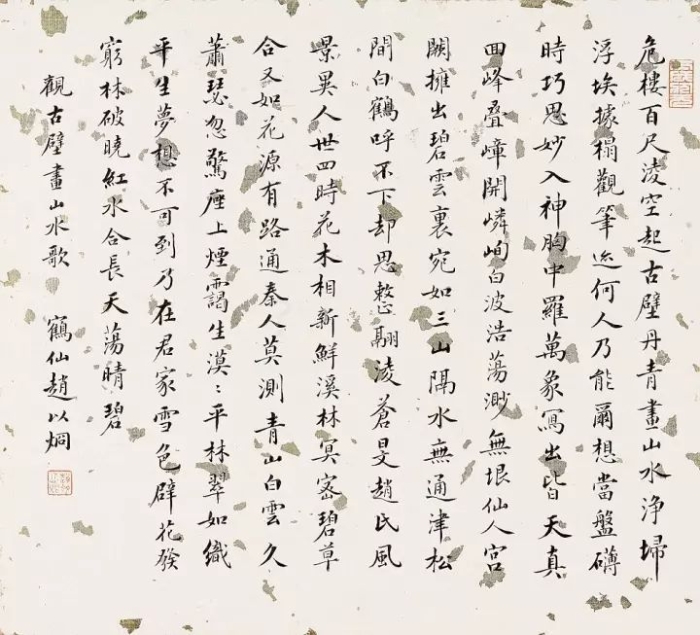 危樓百尺淩空起古壁丹青畫山水淨埽
浮埃據榻觀筆迹何人乃能爾想當盤礴
時巧思妙入神胸中羅萬象寫出皆天真
回峰疊嶂開嶙峋白波浩蕩渺無垠仙人宮
闕擁出碧雲裏宛如三山隔水無通津松
間白鶴呼不下却思整翮淩蒼旻趙氏風
景異人世四時花木相新鮮溪林冥密碧草
合又如花源有路通秦人莫測青山白雲久
蕭瑟忽驚座上煙靄生漠〻平林翠如織
平生夢想不可到乃在君家雪色壁花發
窮林破曉紅水合長天蕩晴碧
觀古壁畫山水歌 鶴仙趙以炯